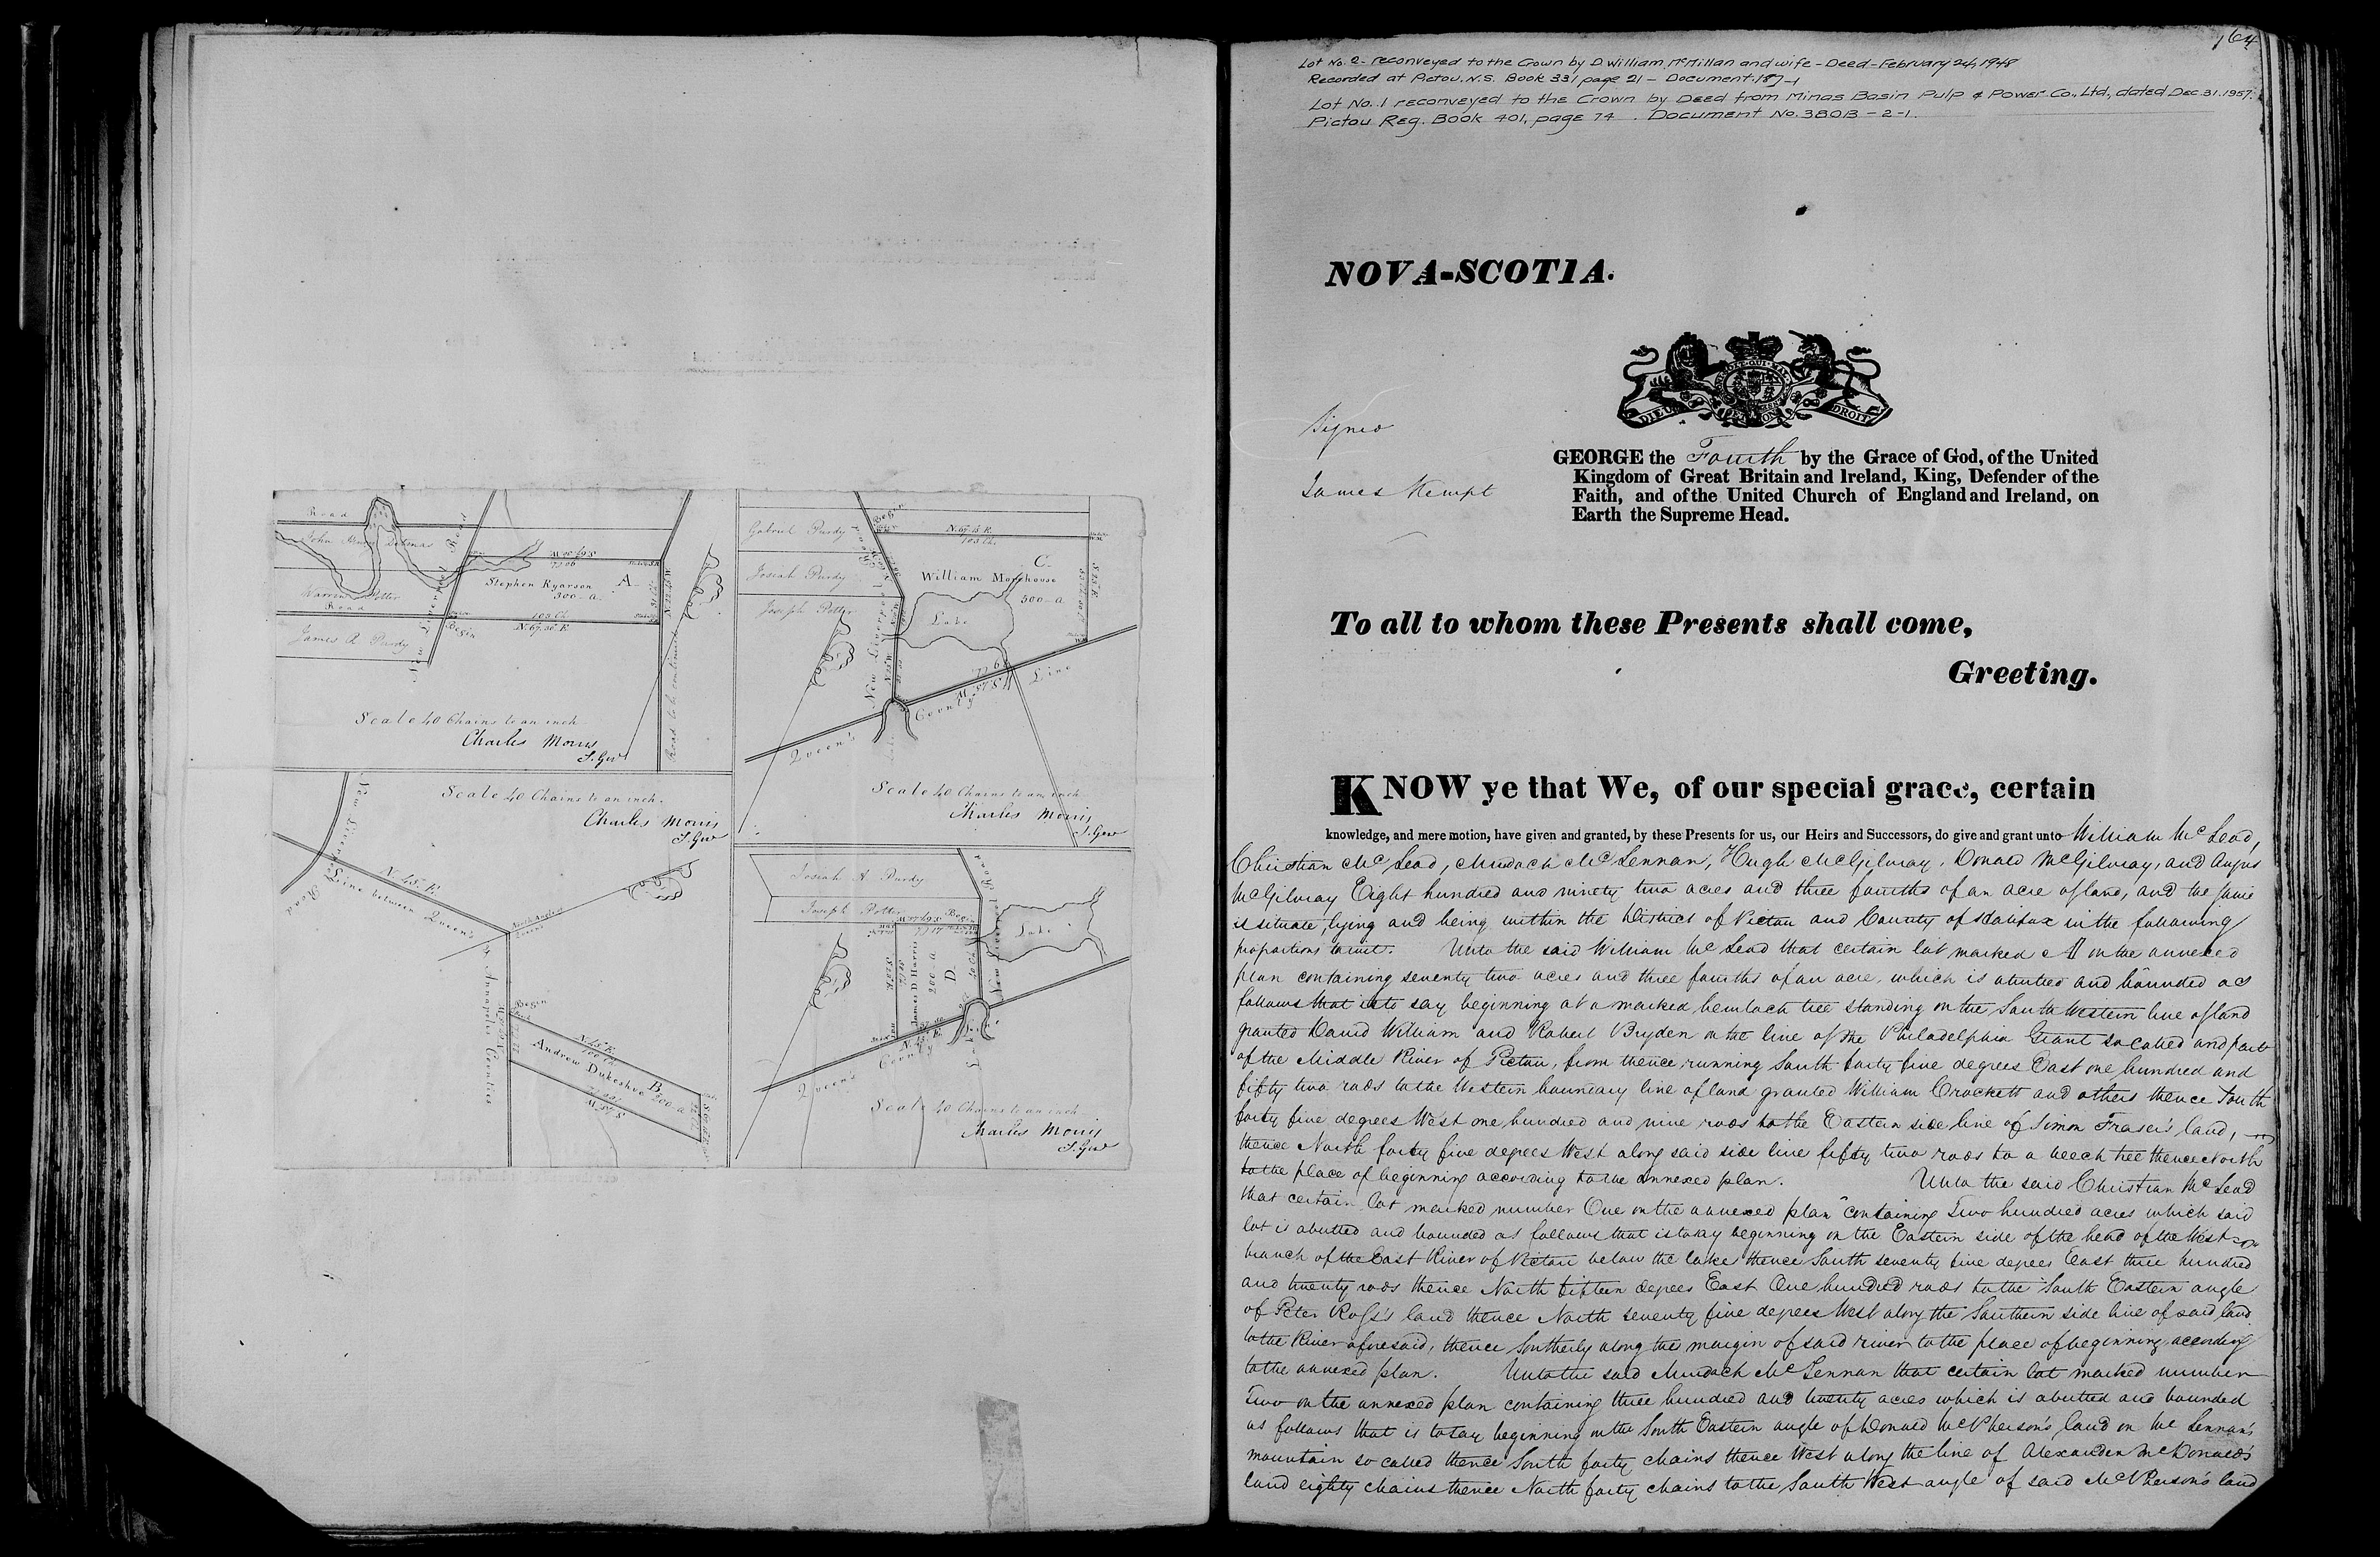 Road
John Henry Ditmas
New Liverpool Road
Stephen Ryarson
A
300 a.
103 Ch.
N. 67.30 E.
Begin
Warren Potter
Road
James R Purdy
Road to be continued
Scale 40 Chains to an inch
Charles Morris
S. Genl
Gabriel Purdy
Josiah Purdy
Joseph Potter
Begin
N. 67.15 E.
103 Ch.
C.
William Morehouse
500 a
Lake
New Liverpool Road
Queen's County Line
Scale 40 Chains to an inch
Charles Morris
S. Genl
Scale 40 Chains to an inch.
Charles Morris
S. Genl
New Liverpool Road
N. 45° E.
Line between Queen's & Annapolis Counties
North Angle of Queen's
Begin
N. 45° E.
100 Ch.
Andrew Dukeshue
B
300 a
Josiah A Purdy
Joseph Potter
Begin
James D Harris
200 a
D.
Lake
Queen's County Line
Scale 40 Chains to an inch
Charles Morris
S. Genl
164
Lot No. 2 - reconveyed to the Crown by D. William McMillan and wife - Deed - February 24, 1948
Recorded at Pictou, N.S. Book 331 page 21 - Document 187-1
Lot No. 1 reconveyed to the Crown by Deed from Minas Basin Pulp & Power Co., Ltd., dated Dec. 31. 1957.
Pictou Reg. Book 401, page 74. Document No. 380B-2-1.
NOVA-SCOTIA.
DIEU ET MON DROIT
Signed
James Kempt
GEORGE the Fourth by the Grace of God, of the United
Kingdom of Great Britain and Ireland, King, Defender of the
Faith, and of the United Church of England and Ireland, on
Earth the Supreme Head.
To all to whom these Presents shall come,
Greeting.
KNOW ye that We, of our special grace, certain
knowledge, and mere motion, have given and granted, by these Presents for us, our Heirs and Successors, do give and grant unto William McLeod,
Christian McLeod, Murdoch McLennan, Hugh McGilvray, Donald McGilvray, and Angus
McGilvray Eight hundred and ninety two acres and three fourths of an acre of land, and the same
is situate, lying and being within the District of Pictou and County of Halifax in the following
proportions to wit. Unto the said William McLeod that certain lot marked A on the annexed
plan containing seventy two acres and three fourths of an acre, which is abutted and bounded as
follows that is to say beginning at a marked hemlock tree standing on the South Western line of land
granted David William and Robert Bryden on the line of the Philadelphia Grant so called and part
of the Middle River of Pictou, from thence running South forty five degrees East one hundred and
fifty two rods to the Western boundary line of land granted William Crockett and others thence South
forty five degrees West one hundred and nine rods to the Eastern side line of Simon Fraser's land,
thence North forty five degrees West along said side line fifty two rods to a beech tree thence North
to the place of beginning according to the annexed plan. Unto the said Christian McLeod
that certain lot marked number One on the annexed plan containing Two hundred acres which said
lot is abutted and bounded as follows that is to say beginning on the Eastern side of the head of the West
branch of the East River of Pictou below the lake thence South seventy five degrees East three hundred
and twenty rods thence North fifteen degrees East One hundred rods to the South Eastern angle
of Peter Ross's land thence North seventy five degrees West along the Southern side line of said land
to the River aforesaid, thence Southerly along the margin of said river to the place of beginning according
to the annexed plan. Unto the said Murdoch McLennan that certain lot marked number
Two on the annexed plan containing three hundred and twenty acres which is abutted and bounded
as follows that is to say beginning on the South Eastern angle of Donald McPherson's land on McLennan's
mountain so called thence South forty chains thence West along the line of Alexander McDonald's
land eighty chains thence North forty chains to the South West angle of said McPherson's land